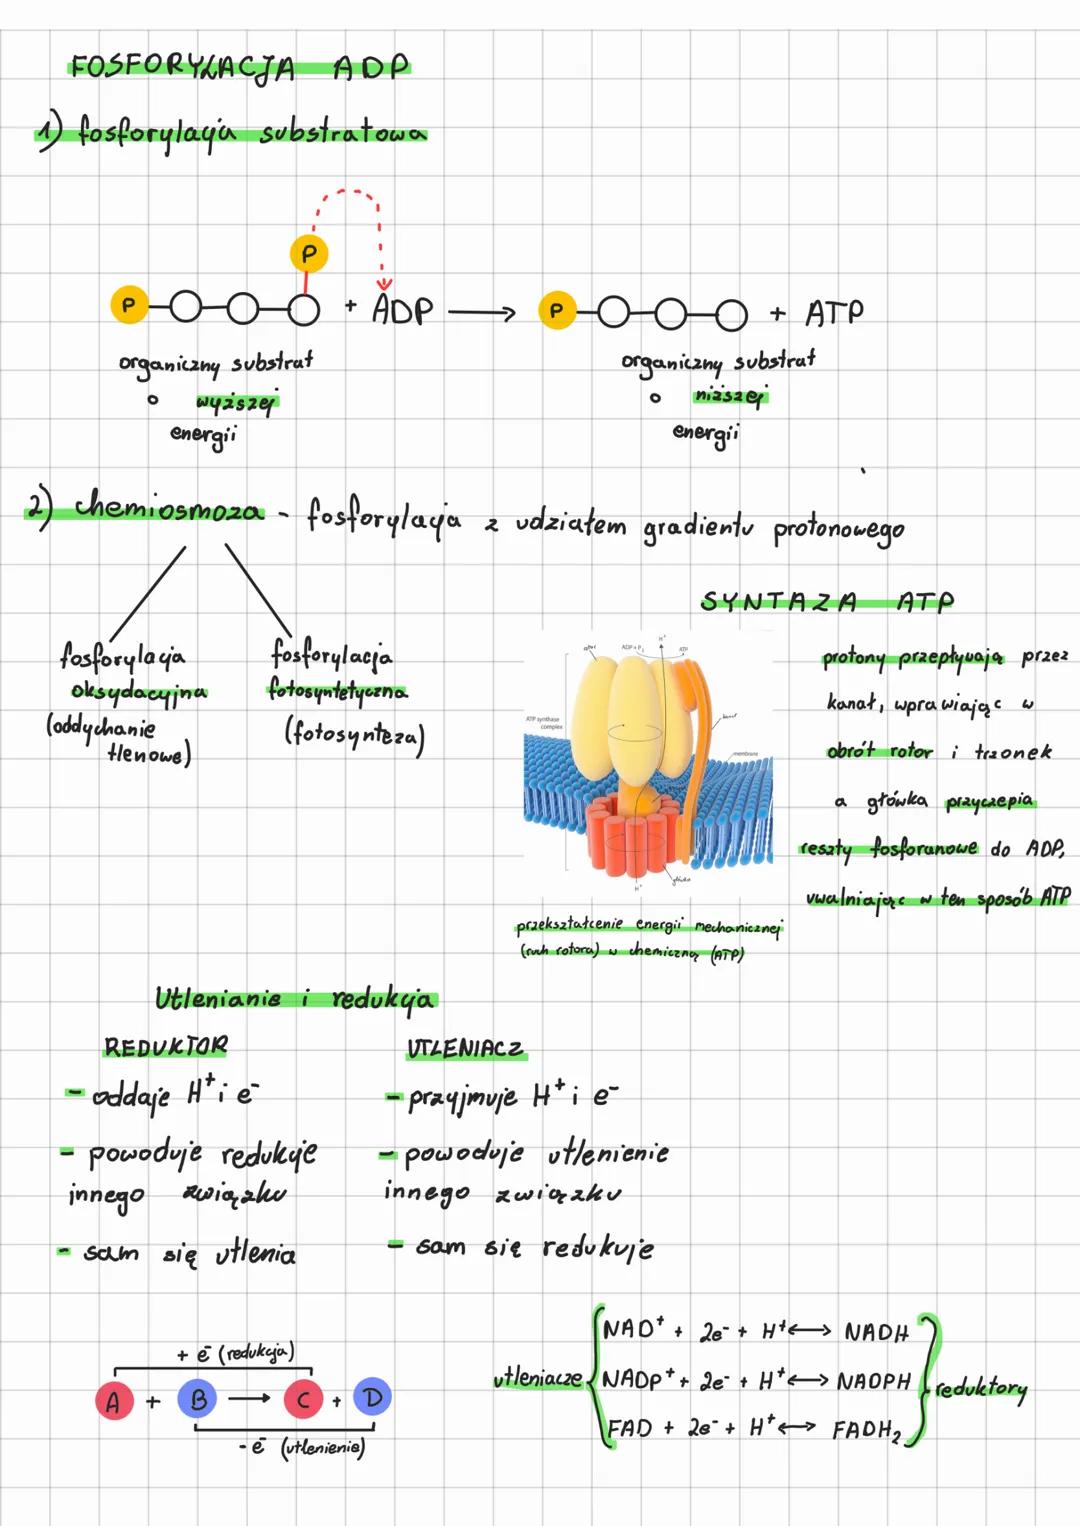 FOSFORYLACJA ADP
1) fosforylacja substratowa
P
P
+ ADP
P
+ ATP
organiczny substrat
o wyższej
energii
organiczny substrat
o niższej
energii
2) chemiosmoza - fosforylacja z udziałem gradientu protonowego
fosforylacja
oksydacyjna
(oddychanie
tlenowe)
fosforylacja
fotosyntetyczna
(fotosynteza)
SYNTAZA ATP
ADP + Pi
H+
ATP
ATP synthase
complex
membrane
H+
główka
protony przepływają przez
kanał, wprawiając w
obrót rotor i trzonek
a główka przyczepia
reszty fosforanowe do ADP,
uwalniając w ten sposób ATP
przekształcenie energii mechanicznej
(ruch rotora) w chemiczną (ATP)
Utlenianie i redukcja
REDUKTOR
- oddaje H⁺ i e⁻
- powoduje redukcję
innego związku
- sam się utlenia
UTLENIACZ
- przyjmuje H⁺ i e⁻
- powoduje utlenienie
innego związku
- sam się redukuje
+ e⁻ (redukcja)
A + B → C + D
- e⁻ (utlenienie)
utleniacze
NAD⁺ + 2e⁻ + H⁺ ↔ NADH
NADP⁺ + 2e⁻ + H⁺ ↔ NADPH
FAD + 2e⁻ + H⁺ ↔ FADH₂
reduktory